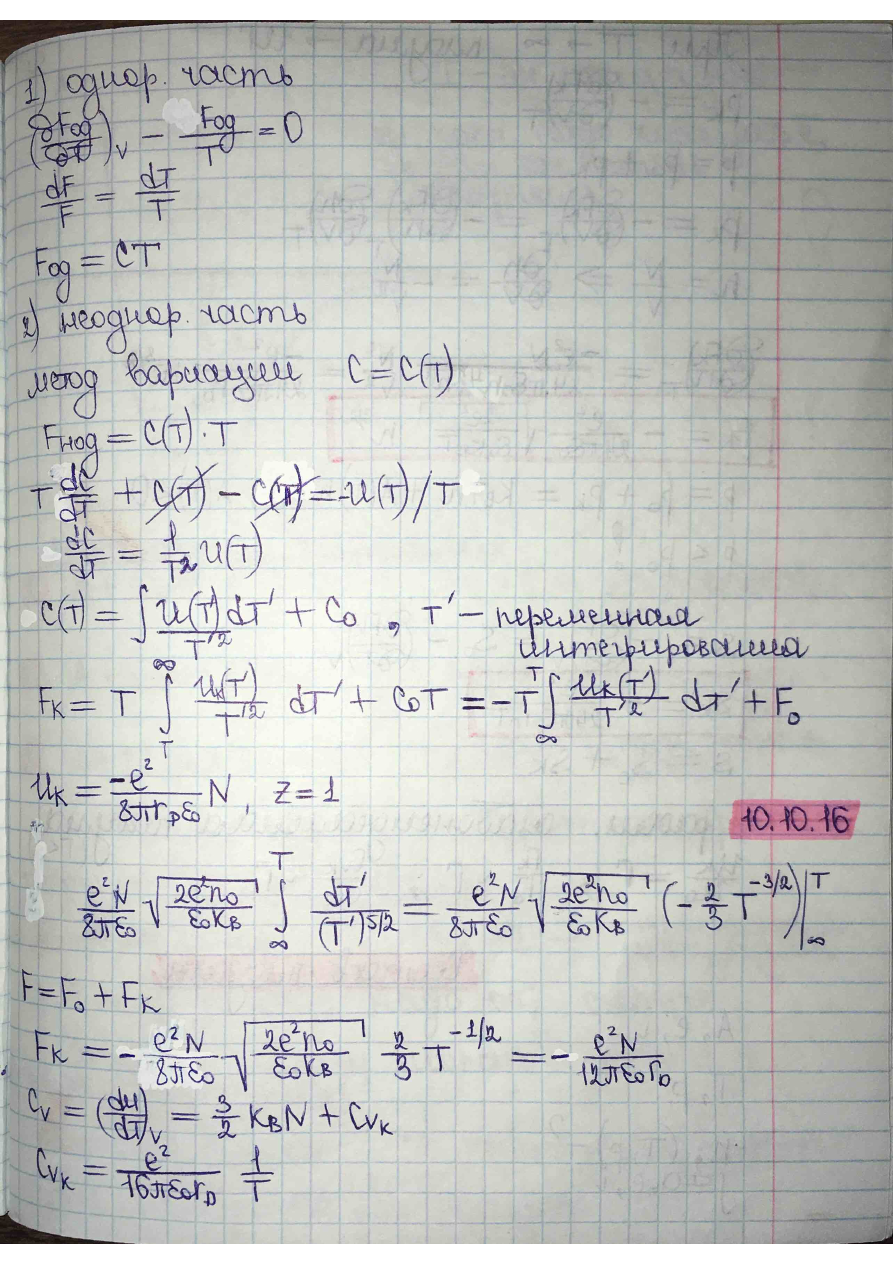 1) однор. часть
(∂Fод/∂T)_V − Fод/T = 0
dF/F = dT/T
Fод = CT
2) неоднор. часть
метод вариации C = C(T)
Fнод = C(T)·T
T dC/dT + C(T) − C(T) = -U(T)/T
dC/dT = 1/T² U(T)
C(T) = ∫ U(T')/T'² dT' + C₀ , T' − переменная
интегрирования
Fк = T ∫_T^∞ Uк(T')/T'² dT' + C₀T = −T ∫_∞^T Uк(T')/T'² dT' + F₀
Uк = −e²/(8πr_Dε₀) N, z = 1
10.10.16
e²N/(8πε₀) √(2e²n₀/(ε₀Kв)) ∫_∞^T dT'/(T')^{5/2} = e²N/(8πε₀) √(2e²n₀/(ε₀Kв)) (−2/3 T^{−3/2})|_∞^T
F = F₀ + Fк
Fк = − e²N/(8πε₀) √(2e²n₀/(ε₀Kв)) 2/3 T^{−1/2} = − e²N/(12πε₀r_D)
Cv = (dU/dT)_V = 3/2 KвN + Cvк
Cvк = e²/(16πε₀r_D) 1/T